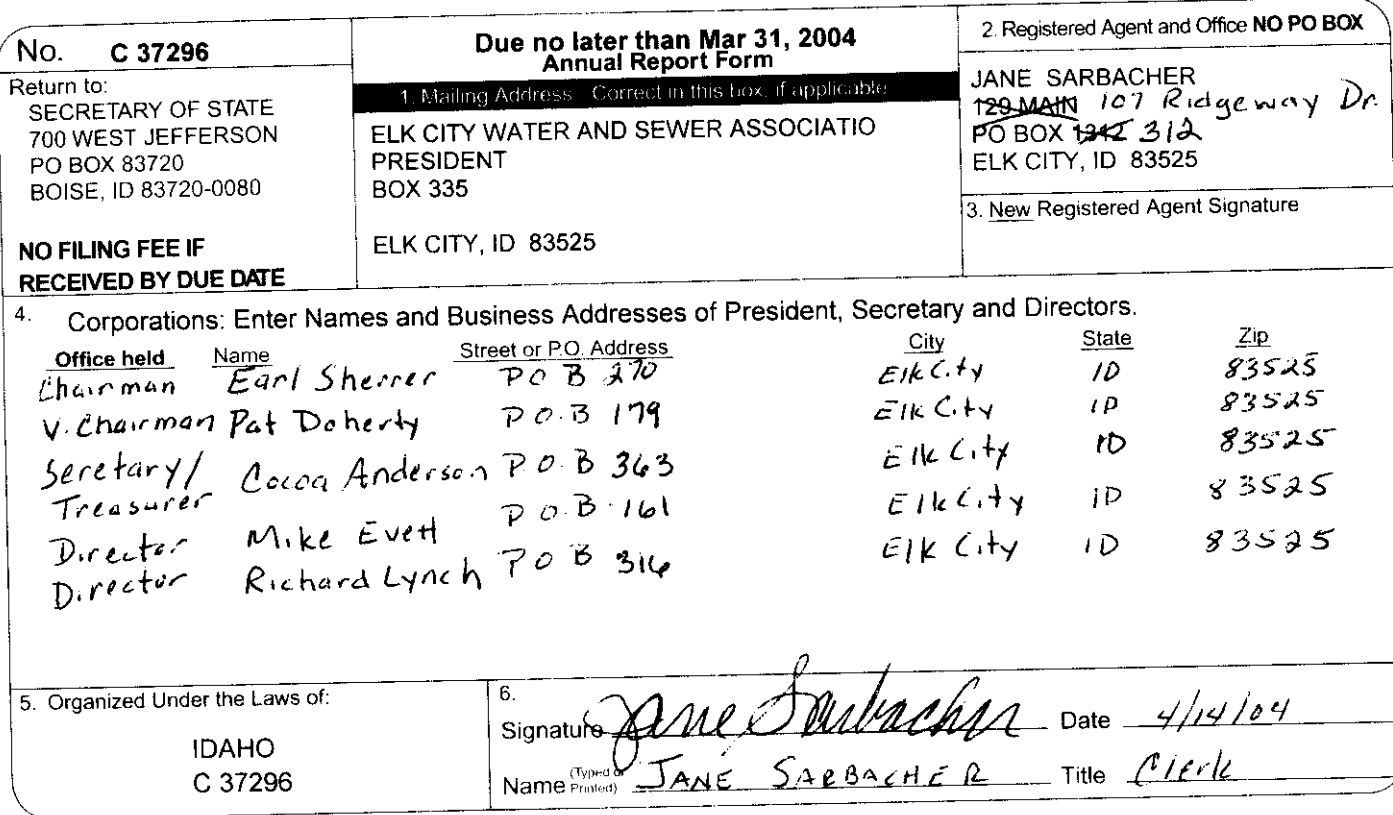 No. C 37296
Return to:
SECRETARY OF STATE
700 WEST JEFFERSON
PO BOX 83720
BOISE, ID 83720-0080
NO FILING FEE IF
RECEIVED BY DUE DATE
Due no later than Mar 31, 2004
Annual Report Form
1. Mailing Address Correct in this box, if applicable
ELK CITY WATER AND SEWER ASSOCIATIO
PRESIDENT
BOX 335
ELK CITY, ID 83525
2. Registered Agent and Office NO PO BOX
JANE SARBACHER
129 MAIN 107 Ridgeway Dr.
PO BOX 1312 312
ELK CITY, ID 83525
3. New Registered Agent Signature
4. Corporations: Enter Names and Business Addresses of President, Secretary and Directors.
Office held Name Street or P.O. Address City State Zip
Chairman Earl Sherrer PO B 270 Elk City ID 83525
V. Chairman Pat Doherty P O.B 179 Elk City ID 83525
Seretary/
Treasurer Cocoa Anderson P.O.B 363 Elk City ID 83525
Director Mike Evett P O.B 161 Elk City ID 83525
Director Richard Lynch P O B 316 Elk City ID 83525
5. Organized Under the Laws of:
IDAHO
C 37296
6.
Signature Jane Sarbacher Date 4/14/04
Name (Typed or Printed) JANE SARBACHER Title Clerk